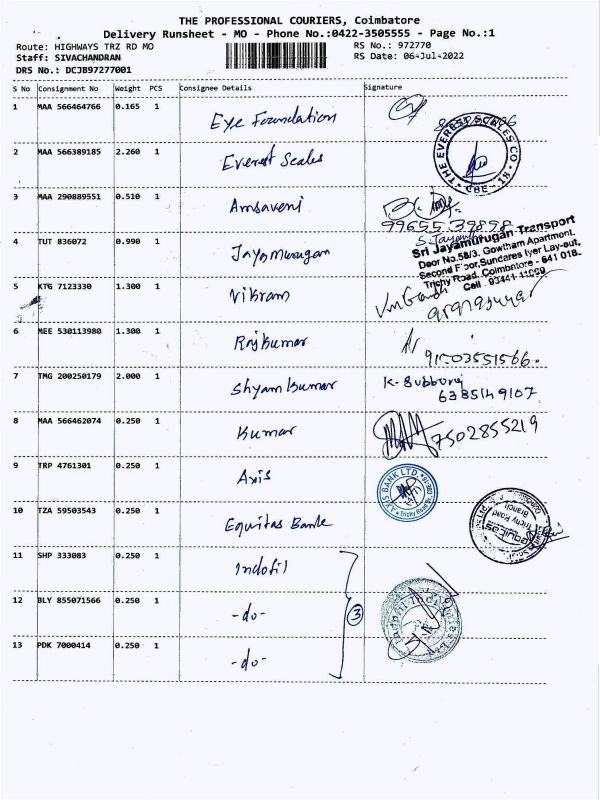 THE PROFESSIONAL COURIERS, Coimbatore
Delivery Runsheet - MO - Phone No.:0422-3505555 - Page No.:1
Route: HIGHWAYS TRZ RD MO RS No.: 972770
Staff: SIVACHANDRAN RS Date: 06-Jul-2022
DRS No.: DCJB97277001
S No Consignment No Weight PCS Consignee Details Signature
1 MAA 566464766 0.165 1 Eye Foundation
2 MAA 566389185 2.260 1 Everest Scales THE EVEREST SCALES CO. CBE - 18
3 MAA 290889551 0.510 1 Amsaveni
99655 39898
4 TUT 836072 0.990 1 Jayamurugan
Sri Jayamurugan Transport
Door No.58/3. Gowtham Apartment.
Second Floor,Sundares Iyer Lay-out,
Trichy Road. Coimbatore - 641 018.
Cell :
5 KTG 7123330 1.300 1 Vikram
6 MEE 530113980 1.300 1 Rajkumar
7 TMG 200250179 2.000 1 Shyam kumar K. Subburaj
6385149107
8 MAA 566462074 0.250 1 Kumar 7502855219
9 TRP 4761301 0.250 1 Axis AXIS BANK LTD.
10 TZA 59503543 0.250 1 Equitas Bank Trichy Road Branch
11 SHP 333083 0.250 1 Indofil
12 BLY 855071566 0.250 1 -do- 3
13 PDK 7000414 0.250 1 -do-